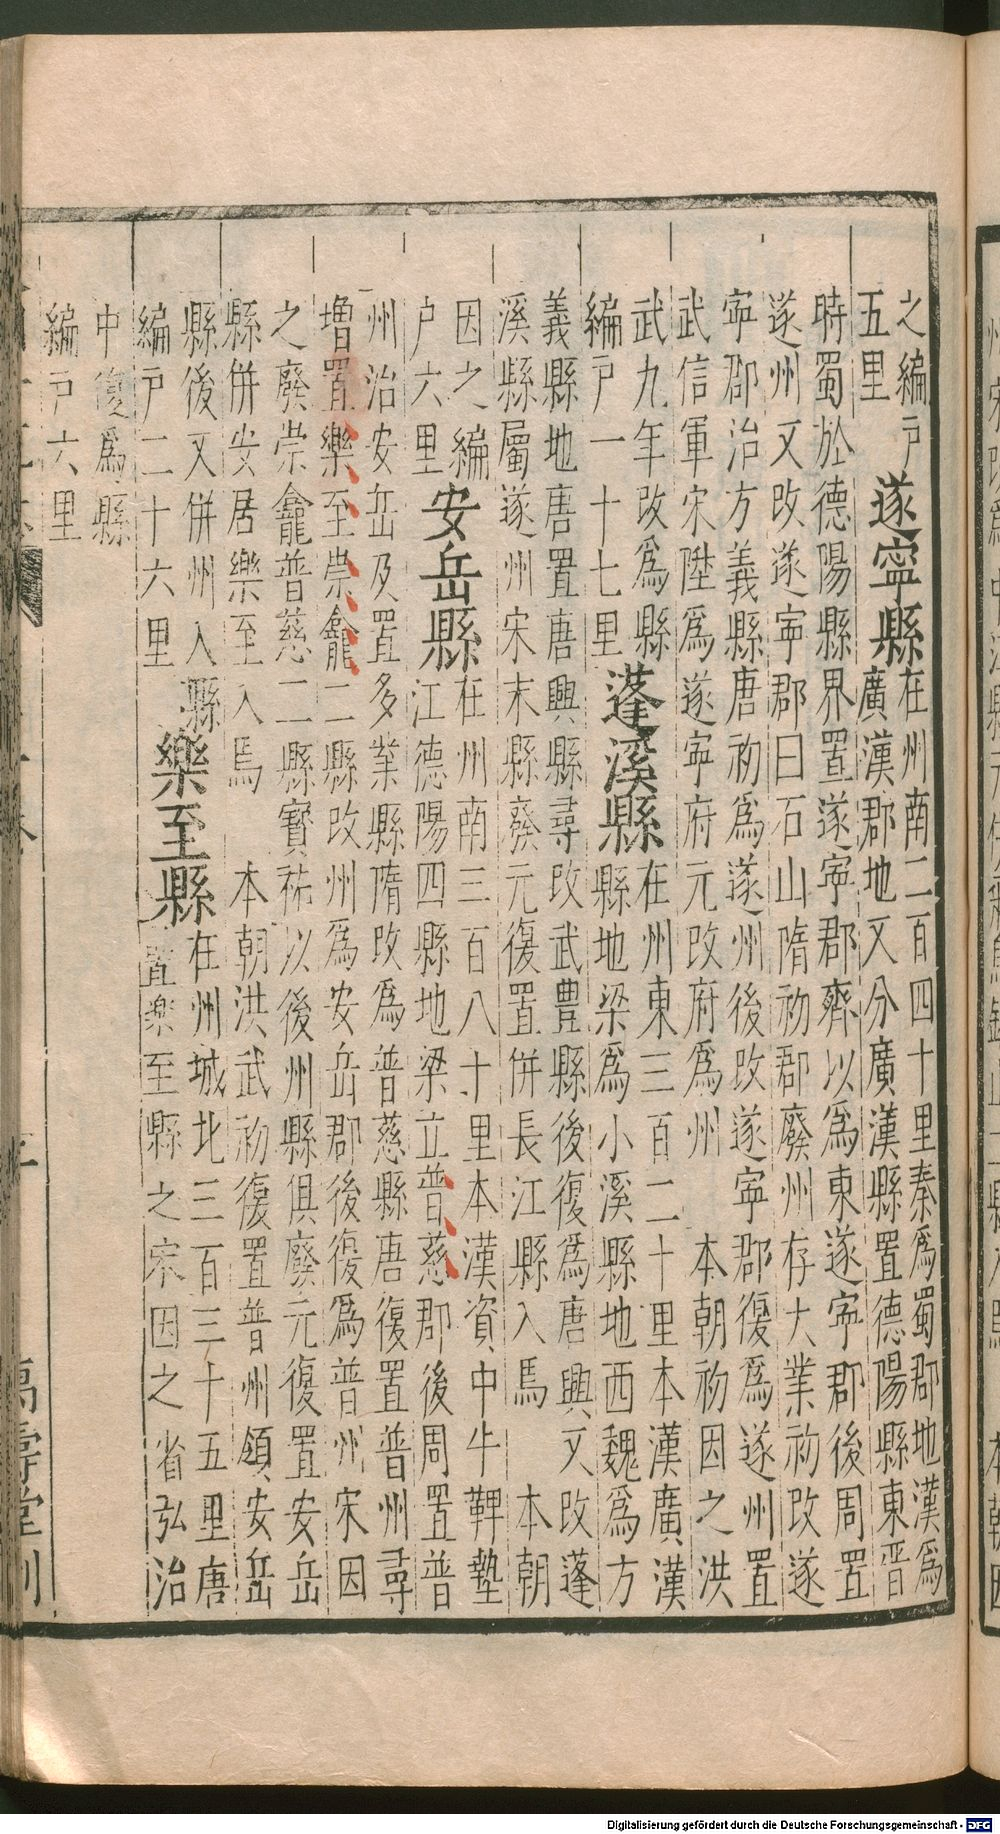 之編户
五里
遂寧縣
在州南二百四十里秦爲蜀郡地漢爲
廣漢郡地又分廣漢縣置德陽縣東晉
時蜀於德陽縣界置遂寧郡齊以爲東遂寧郡後周置
遂州又改遂寧郡曰石山隋初郡廢州存大業初改遂
寧郡治方義縣唐初爲遂州後改遂寧郡復爲遂州置
武信軍宋陞爲遂寧府元改府爲州　本朝初因之洪
武九年改爲縣
編户一十七里
蓬溪縣
在州東三百二十里本漢廣漢
縣地梁爲小溪縣地西魏爲方
義縣地唐置唐興縣尋改武豊縣後復爲唐興又改蓬
溪縣屬遂州宋末縣廢元復置併長江縣入焉　本朝
因之編
户六里
安岳縣
在州南三百八十里本漢資中牛鞞墊
江德陽四縣地梁立普慈郡後周置普
州治安岳及置多業縣隋改爲普慈縣唐復置普州尋
増置樂至崇龕二縣改州爲安岳郡後復爲普州宋因
之廢崇龕普慈二縣寳祐以後州縣俱廢元復置安岳
縣併安居樂至入焉　本朝洪武初復置普州領安岳
縣後又併州入縣
編户二十六里
樂至縣
在州城北三百三十五里唐
置樂至縣之宋因之省弘治
中復爲縣
編户六里
萬壽堂刊
Digitalisierung gefördert durch die Deutsche Forschungsgemeinschaft - DFG